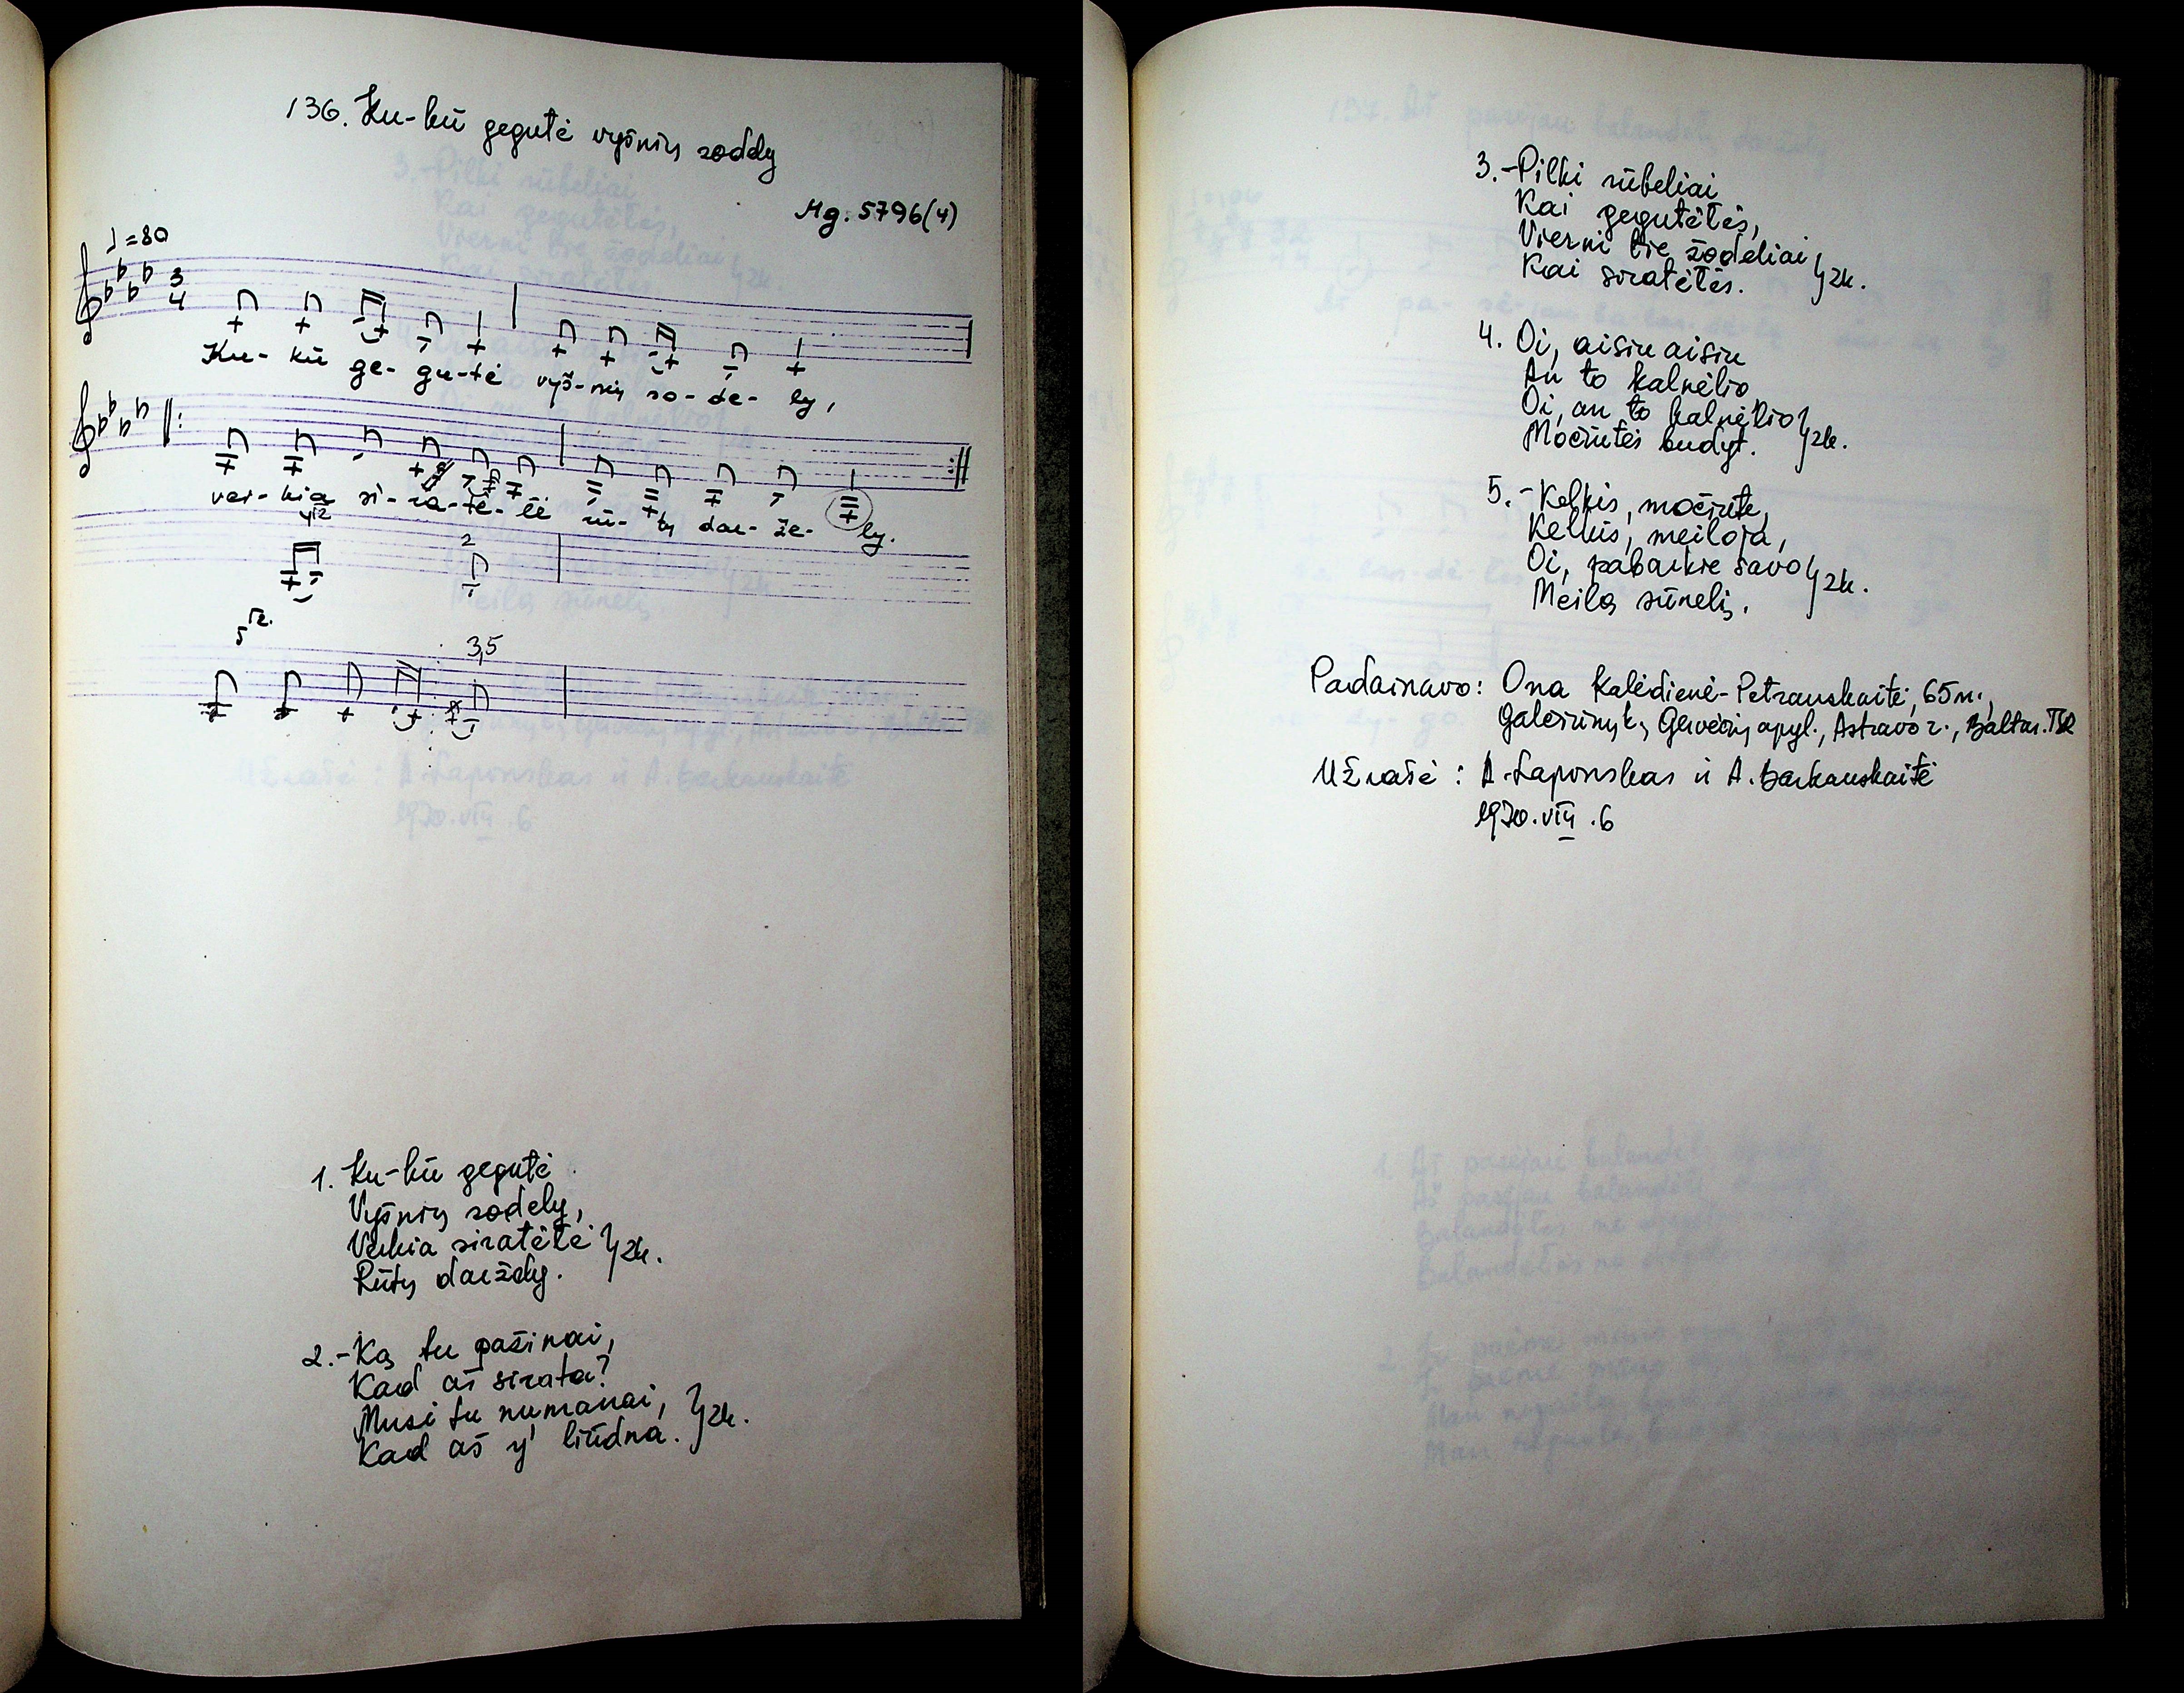 136. Ku-kū gegutė vyšnių sodely
Mg. 5796(4)
♩=80
3
4
Ku- kū ge- gu-tė vyš-nių so-de- ly,
ver- kia si-ra-tė-lė rū- tų dar- že- ly.
2
3,5
1. Ku-kū gegutė
Vyšnių sodely,
Verkia siratėlė }2k.
Rūtų daržely.
2.-Ką tu pažinai,
Kad aš sirata?
Musi tu numanai, }2k.
Kad aš y' liūdna.
3.-Pilki rūbeliai
Kai gegutėtės,
Vierni tie žodeliai }2k.
Kai siratėtės.
4. Oi, aisiu aisiu
An to kalnelio
Oi, an to kalnelio }2k.
Močiutės budyt.
5.-Kelkis, močiute,
Kelkis, meiloja,
Oi, pabarkie savo }2k.
Meilą sūnelį.
Padainavo: Ona Kalėdienė-Petrauskaitė, 65m.,
Galčiūnų k., Gervėčių apyl., Astravo r., Baltar. TSR
Užrašė: A. Laponskas ir A. Barkauskaitė
1970.VIII.6